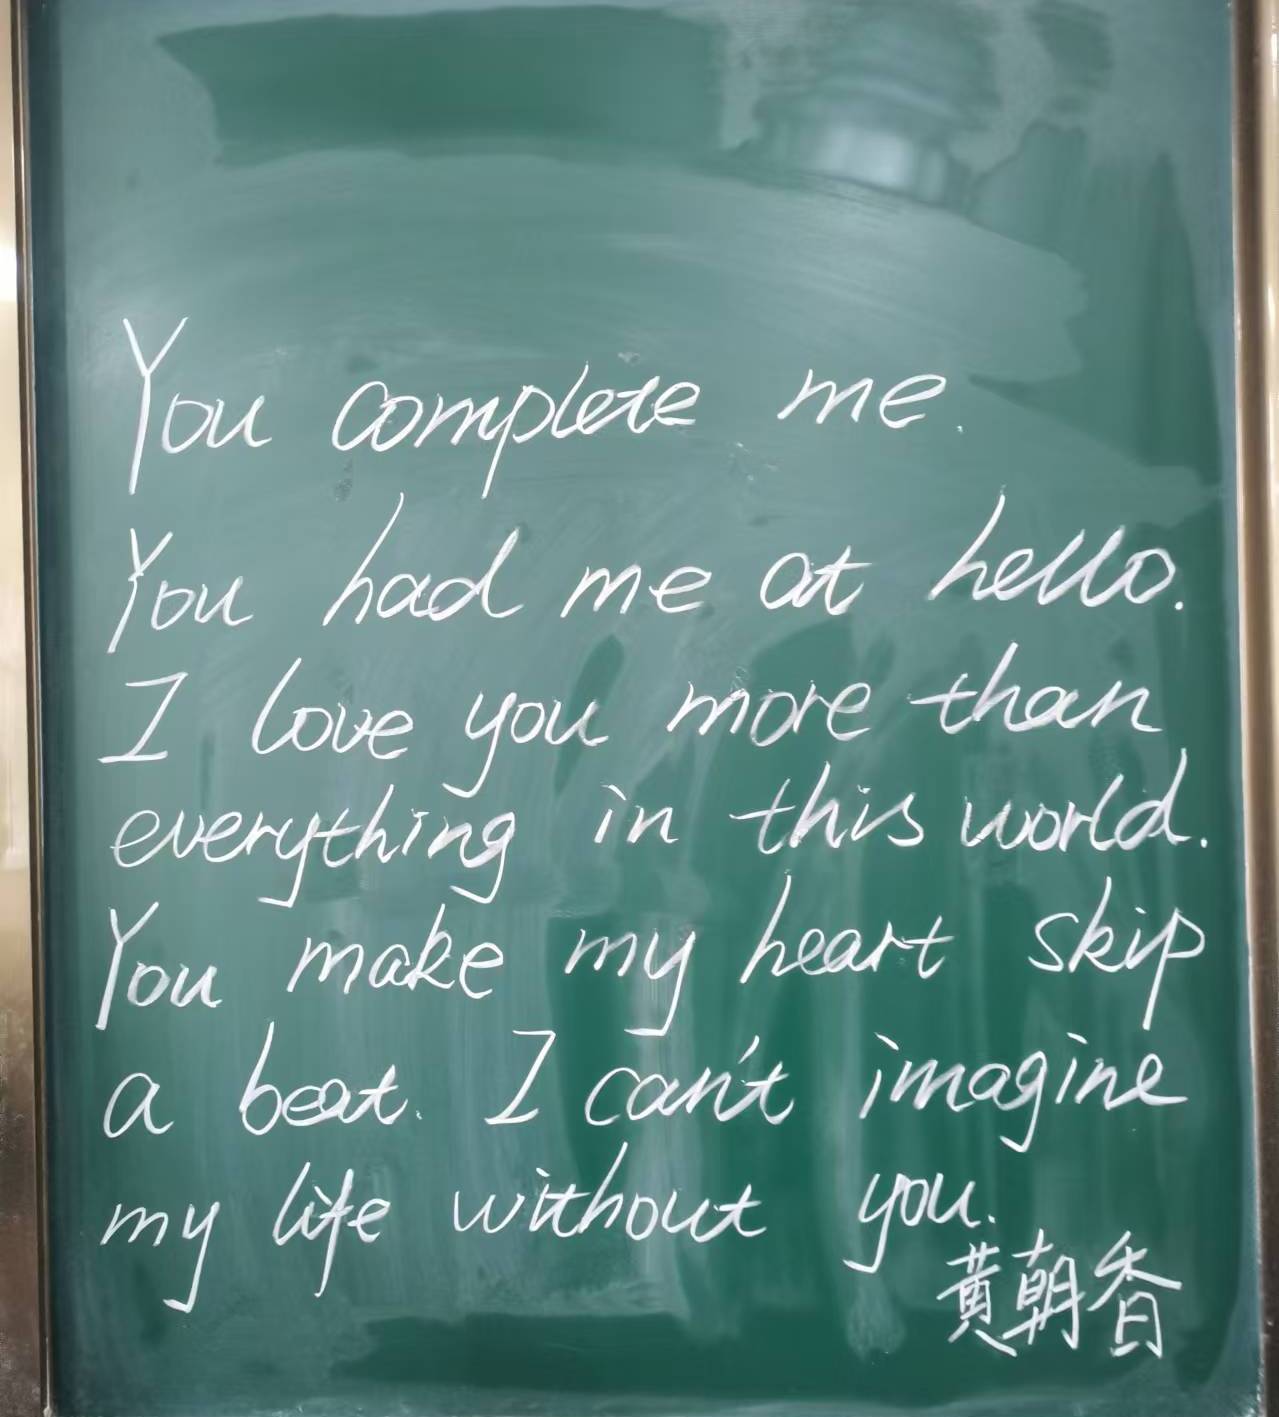 You complete me.
You had me at hello.
I love you more than
everything in this world.
You make my heart skip
a beat. I can't imagine
my life without you.
黄朝香